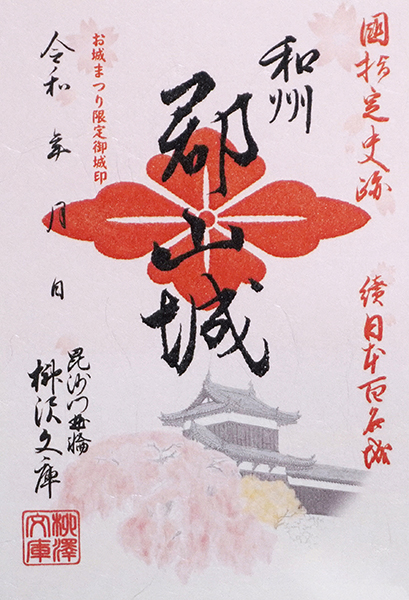 國指定史跡
續日本百名城
和州
郡山城
お城まつり限定御城印
令和 年 月 日
毘沙門曲輪
柳沢文庫
柳澤
文庫